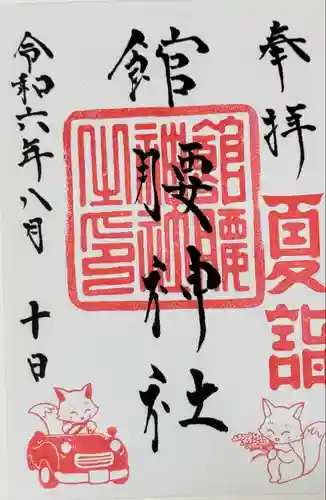 奉拝
夏詣
館腰神社
館腰神社之印
令和六年八月十日